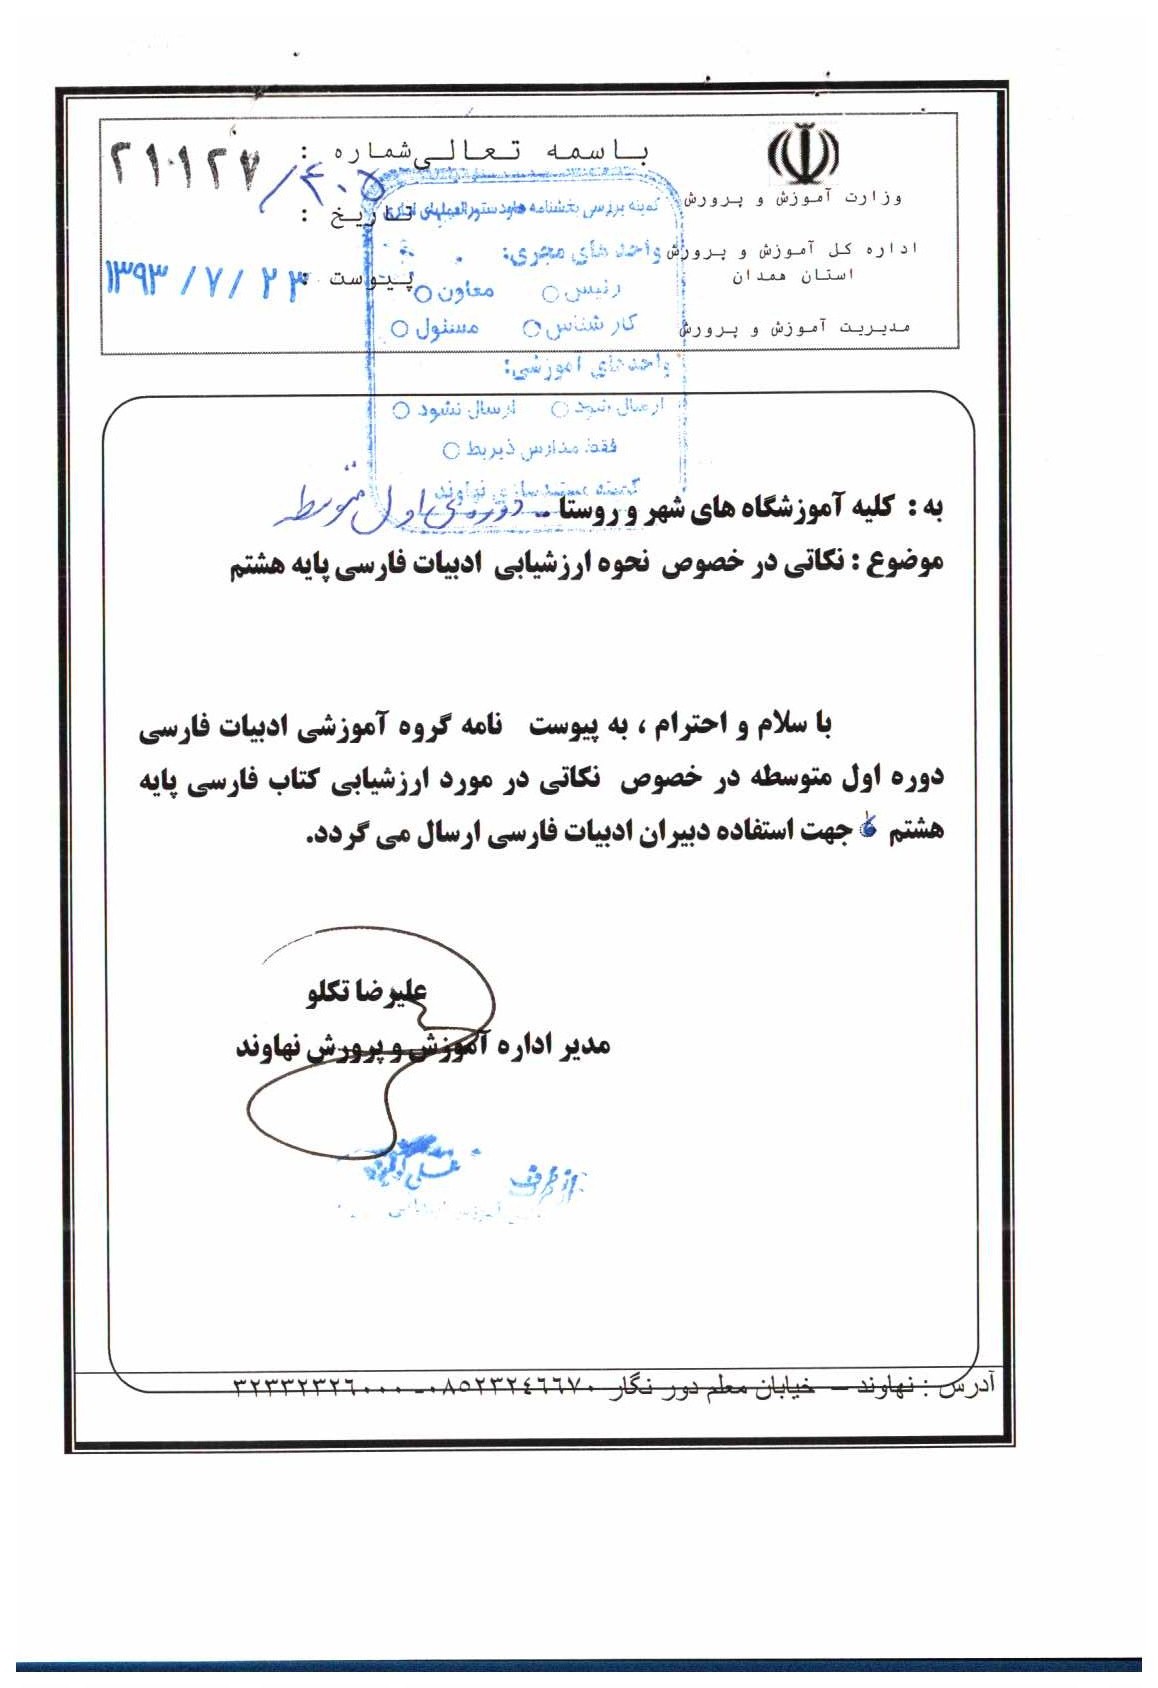 باسمه تعالی
شماره :
۲۱۰۱۲۷/۴۰۵
تاریخ :
۱۳۹۳/۷/۲۳
پیوست :
وزارت آموزش و پرورش
اداره کل آموزش و پرورش
استان همدان
مدیریت آموزش و پرورش
بررسی بخشنامه ها و دستورالعملهای اداری
واحد های مجری:
رئیس ○ معاون ○
کارشناس ○ مسئول ○
واحدهای آموزشی:
ارسال شود ○ ارسال نشود ○
فقط مدارس ذیربط ○
کمیته مستندسازی نهاوند
به : کلیه آموزشگاه های شهر و روستا - دوره ی اول متوسطه
موضوع : نکاتی در خصوص نحوه ارزشیابی ادبیات فارسی پایه هشتم
با سلام و احترام ، به پیوست نامه گروه آموزشی ادبیات فارسی
دوره اول متوسطه در خصوص نکاتی در مورد ارزشیابی کتاب فارسی پایه
هشتم جهت استفاده دبیران ادبیات فارسی ارسال می گردد.
علیرضا تکلو
مدیر اداره آموزش و پرورش نهاوند
از طرف
آدرس : نهاوند – خیابان معلم دور نگار ۰۸۵۲۳۲٤٦٦٧۰-۳۲۳۳۲۳۲٦۰۰۰